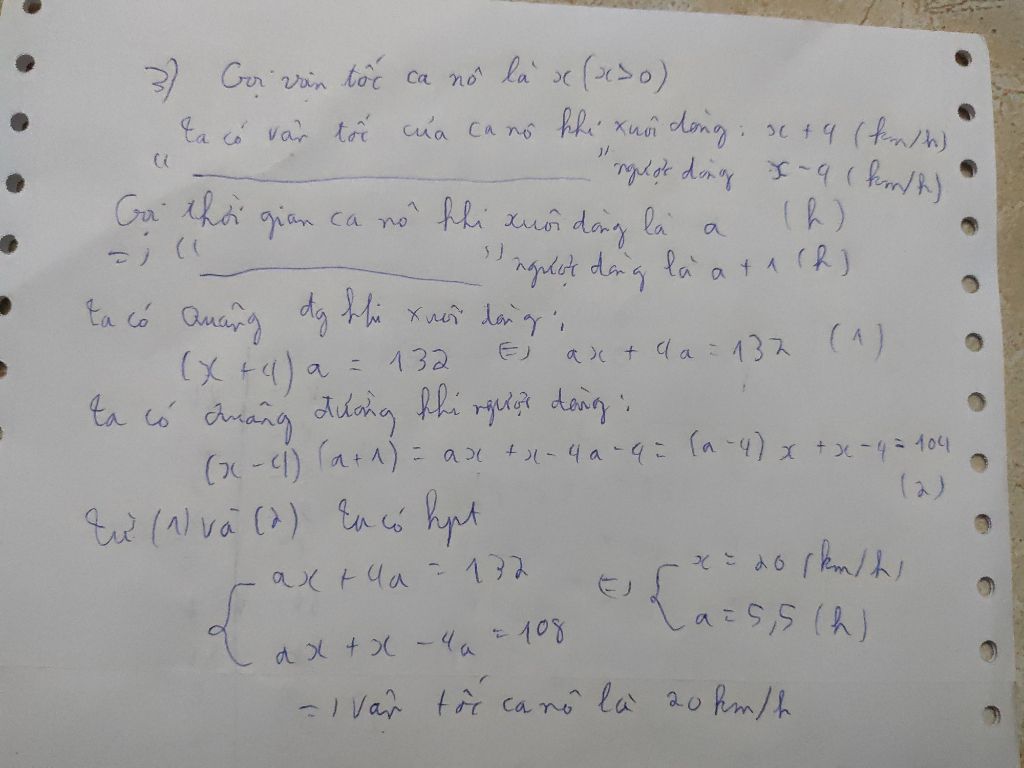 3) Gọi vận tốc ca nô là x (x>0)
Ta có vận tốc của ca nô khi xuôi dòng: x + 4 (km/h)
" ———— " ngược dòng x - 4 (km/h)
Gọi thời gian ca nô khi xuôi dòng là a (h)
=) " ———— " ngược dòng là a + 1 (h)
Ta có quãng đg khi xuôi dòng:
(x + 4) a = 132 (=) ax + 4a = 132 (1)
Ta có quãng đường khi ngược dòng:
(x - 4) (a + 1) = ax + x - 4a - 4 = (a - 4) x + x - 4 = 104
(2)
Từ (1) và (2) ta có hpt
{ ax + 4a = 132 (=) { x = 20 (km/h)
ax + x - 4a = 108 a = 5,5 (h)
=) vận tốc ca nô là 20 km/h